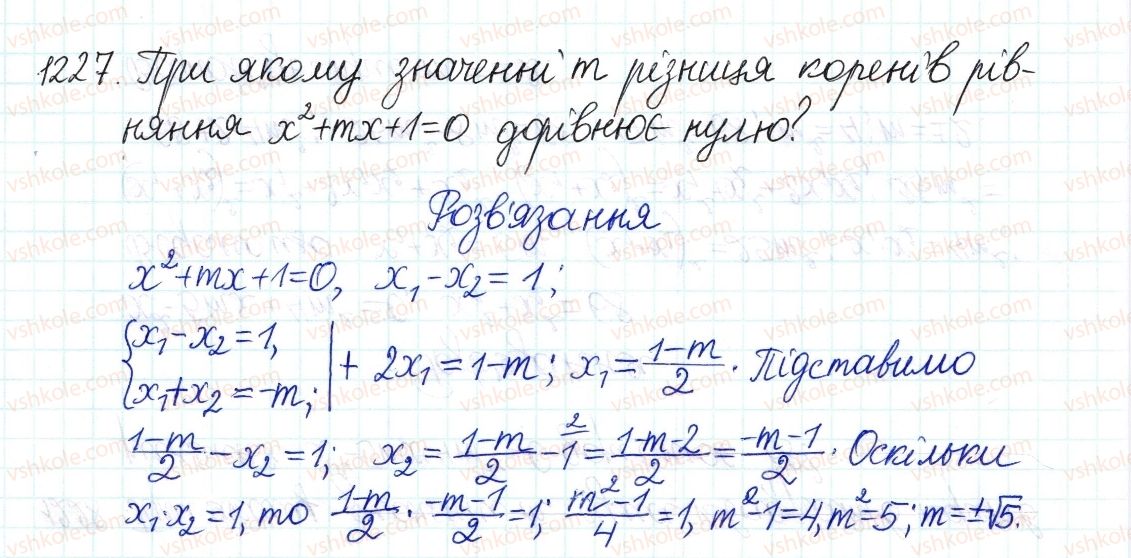 1227. При якому значенні m різниця коренів рів-
няння x²+mx+1=0 дорівнює нулю?
Розв'язання
x²+mx+1=0, x₁-x₂=1;
{x₁-x₂=1, x₁+x₂=-m;| + 2x₁=1-m; x₁=(1-m)/2. Підставимо
(1-m)/2-x₂=1; x₂=(1-m)/2-²/1=(1-m-2)/2=(-m-1)/2. Оскільки
x₁·x₂=1, то (1-m)/2·(-m-1)/2=1; (m²-1)/4=1, m²-1=4, m²=5; m=±√5.
vshkole.com